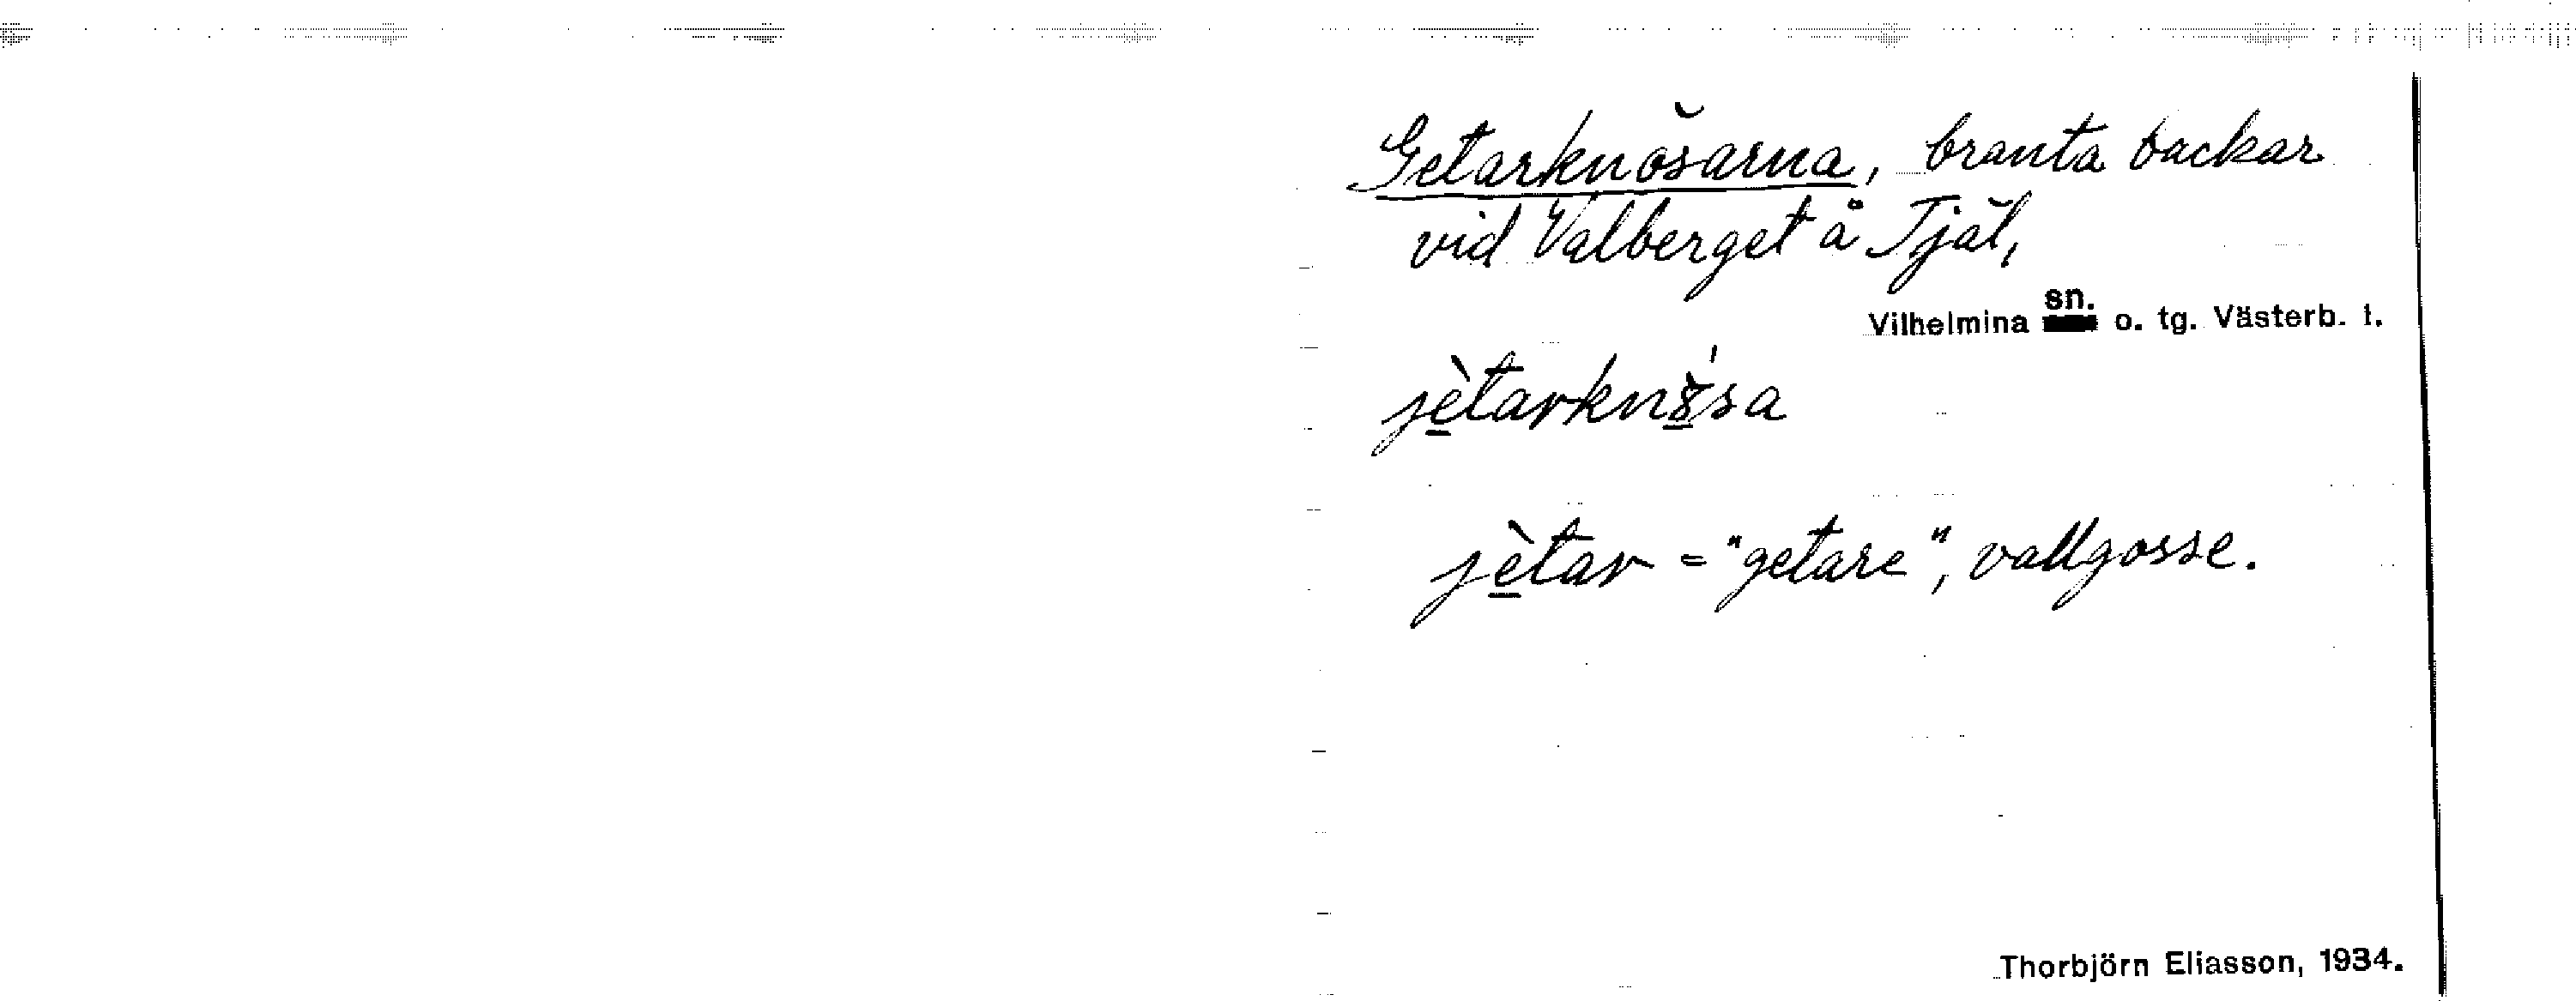 Getarknösarna, branta backar
vid Valberget å Tjäl,
Vilhelmina sn. o. tg. Västerb. l.
jètar = "getare", vallgosse.
Thorbjörn Eliasson, 1934.